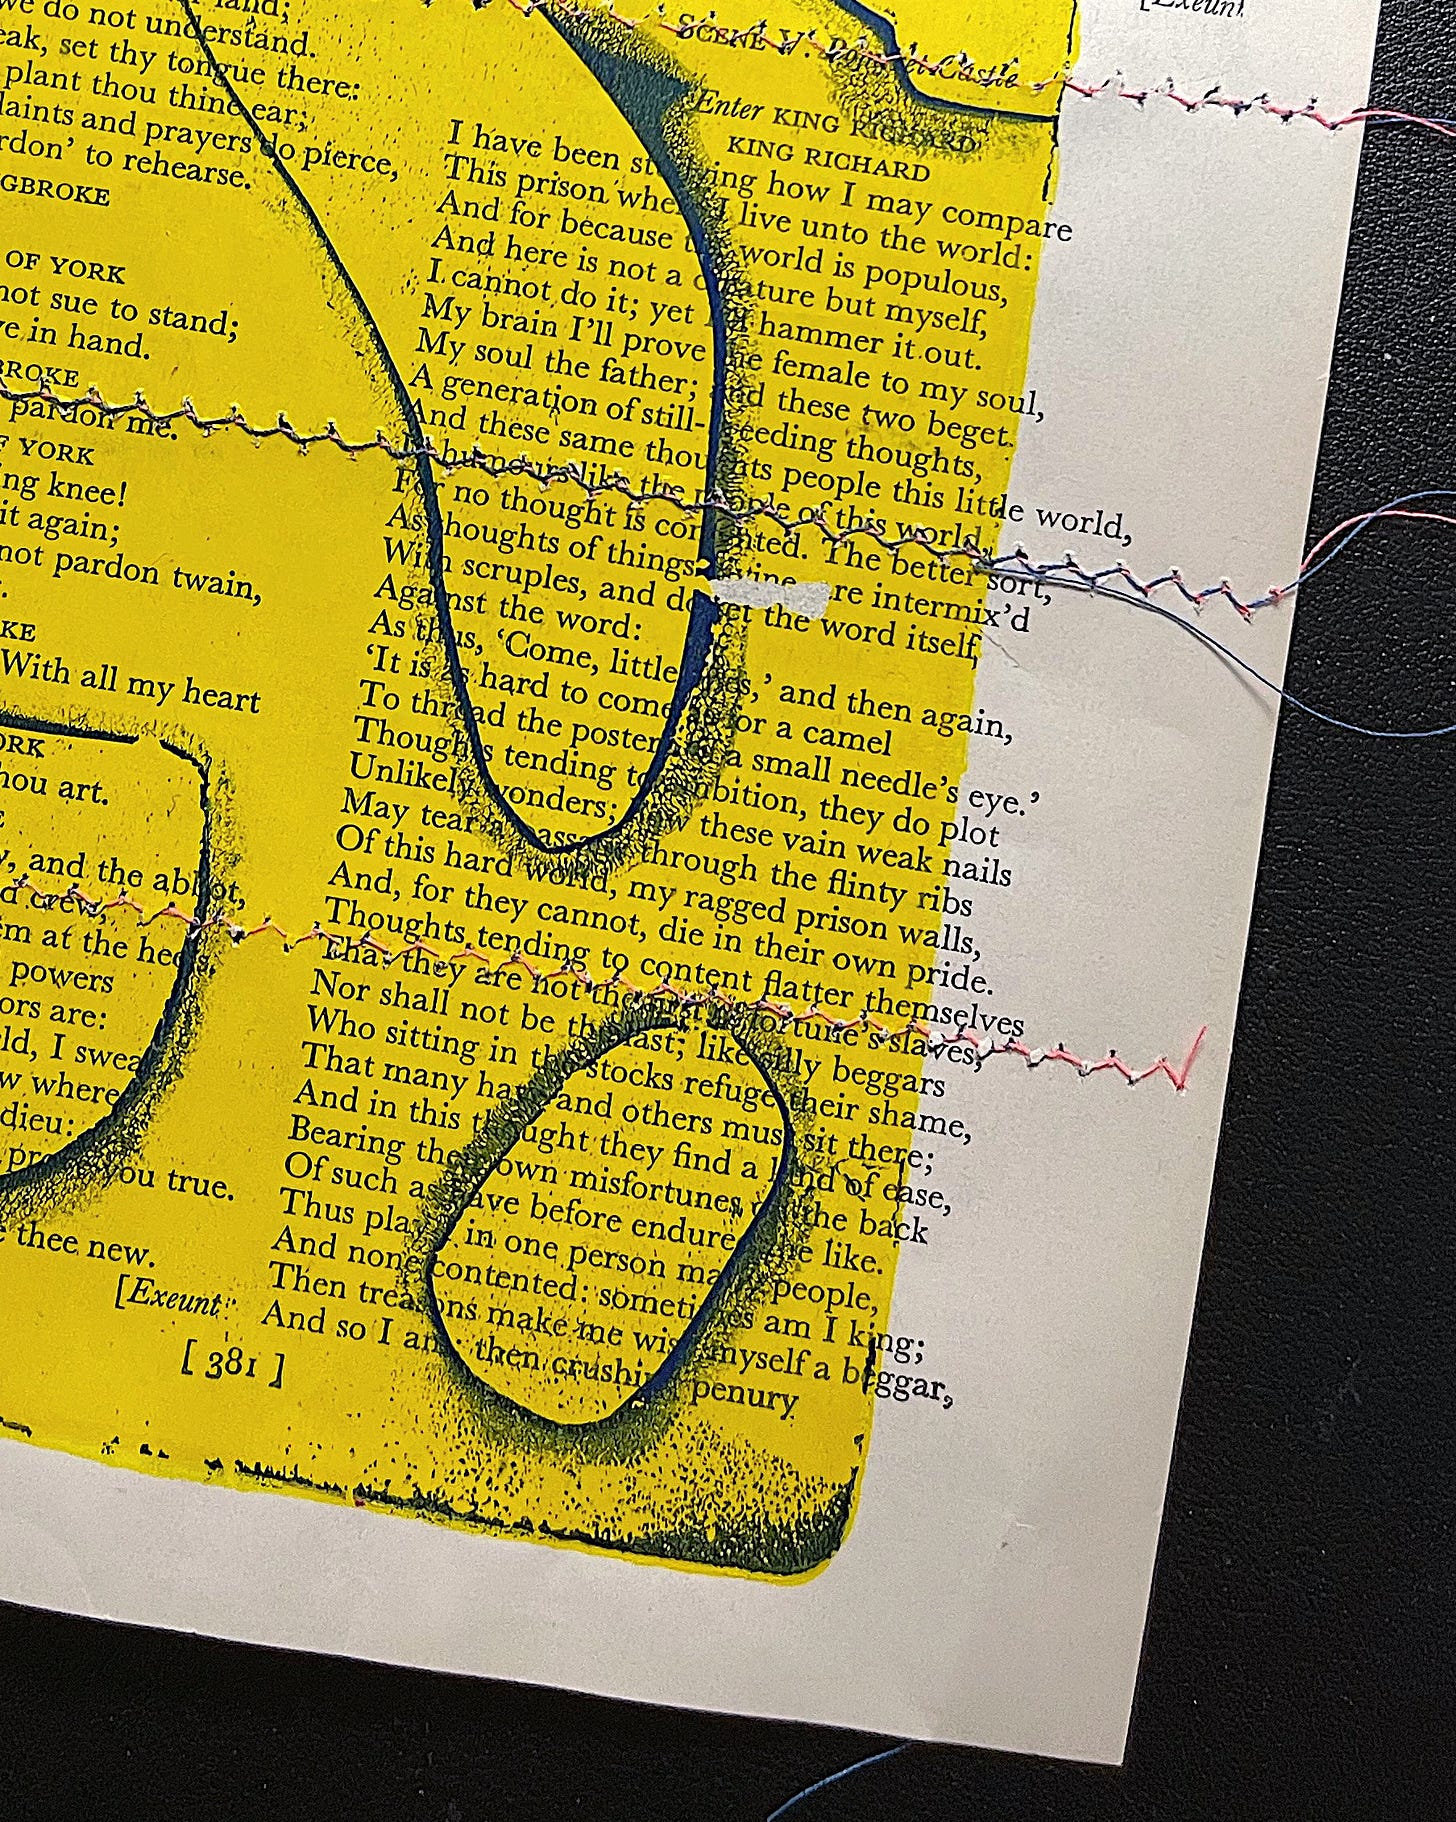 land;
we do not understand.
eak, set thy tongue there:
plant thou thine ear;
laints and prayers do pierce,
rdon' to rehearse.
GBROKE
OF YORK
not sue to stand;
ve in hand.
BROKE
pardon me.
F YORK
ng knee!
it again;
not pardon twain,
KE
With all my heart
ORK
hou art.
E
y, and the abbot,
d crew,
em at the heels,
powers
ors are:
ld, I swear
w where
dieu:
pray you true.
thee new.
[Exeunt
[ 381 ]
[Exeunt
SCENE V: Castle
Enter KING RICHARD
KING RICHARD
I have been st ing how I may compare
This prison whe I live unto the world:
And for because world is populous,
And here is not a creature but myself,
I cannot do it; yet I'll hammer it out.
My brain I'll prove the female to my soul,
My soul the father; and these two beget
A generation of still-breeding thoughts,
And these same thoughts people this little world,
In humours like the people of this world,
For no thought is contented. The better sort,
As thoughts of things divine are intermix'd
With scruples, and do set the word itself
Against the word:
As thus, 'Come, little ones,' and then again,
'It is as hard to come for a camel
To thread the postern a small needle's eye.'
Thoughts tending to ambition, they do plot
Unlikely wonders; how these vain weak nails
May tear a passage through the flinty ribs
Of this hard world, my ragged prison walls,
And, for they cannot, die in their own pride.
Thoughts tending to content flatter themselves
That they are not the first of fortune's slaves,
Nor shall not be the last; like silly beggars
Who sitting in the stocks refuge their shame,
That many have and others must sit there;
And in this thought they find a kind of ease,
Bearing their own misfortunes on the back
Of such as have before endured the like.
Thus play I in one person many people,
And none contented: sometimes am I king;
Then treasons make me wish myself a beggar,
And so I am: then crushing penury